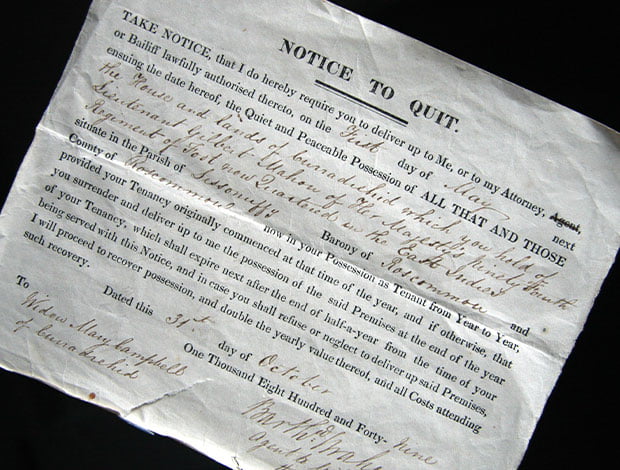 NOTICE TO QUIT.
TAKE NOTICE, that I do hereby require you to deliver up to Me, or to my Attorney, Agent,
or Bailiff lawfully authorised thereto, on the First day of May next
ensuing the date hereof, the Quiet and Peaceable Possession of ALL THAT AND THOSE
the House and lands of which you hold of
Lieutenant Gilbert Mahon of Her Majesty's Ninety
Regiment of Foot now Quartered in the East Indies
situate in the Parish of Lissonuffy Barony of Roscommon and
County of Roscommon now in your Possession as Tenant from Year to Year,
provided your Tenancy originally commenced at that time of the year, and if otherwise, that
you surrender and deliver up to me the possession of the said Premises at the end of the year
of your Tenancy, which shall expire next after the end of half-a-year from the time of your
being served with this Notice, and in case you shall refuse or neglect to deliver up said Premises,
I will proceed to recover possession, and double the yearly value thereof, and all Costs attending
such recovery.
Dated this 31st day of October
One Thousand Eight Hundred and Forty-nine
To
Widow Mary Campbell
of
Agent to